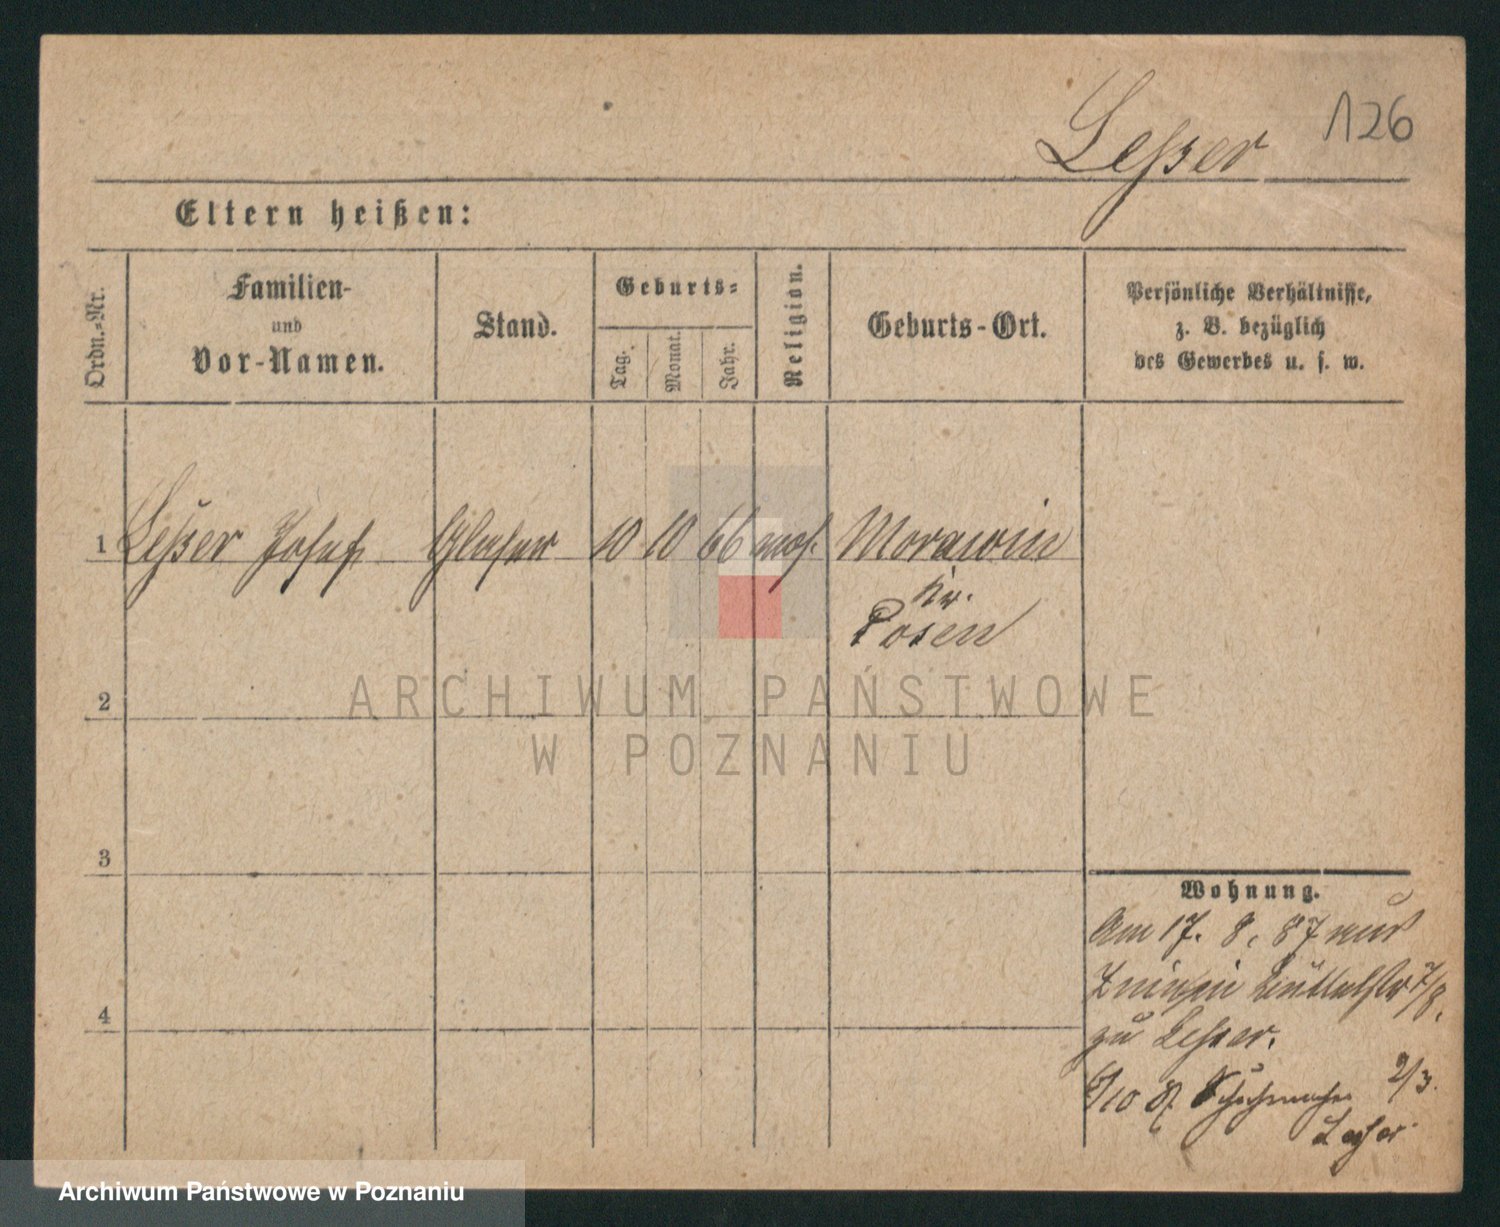 126
Leßer
Eltern heißen:
Ordn.-Nr.
Familien-
und
Vor-Namen.
Stand.
Geburts-
Tag.
Monat.
Jahr.
Religion.
Geburts-Ort.
Persönliche Verhältnisse,
z. B. bezüglich
des Gewerbes u. s. w.
1 Leßer Josef Glaser 10 10 66 mos. Morawin
Kr.
Posen
2
3
4
Wohnung.
Am 17. 8. 87 aus
7/8.
zu Lesser.
6/10 87 Schuhmacher 2/3.
ARCHIWUM PAŃSTWOWE
W POZNANIU
Archiwum Państwowe w Poznaniu